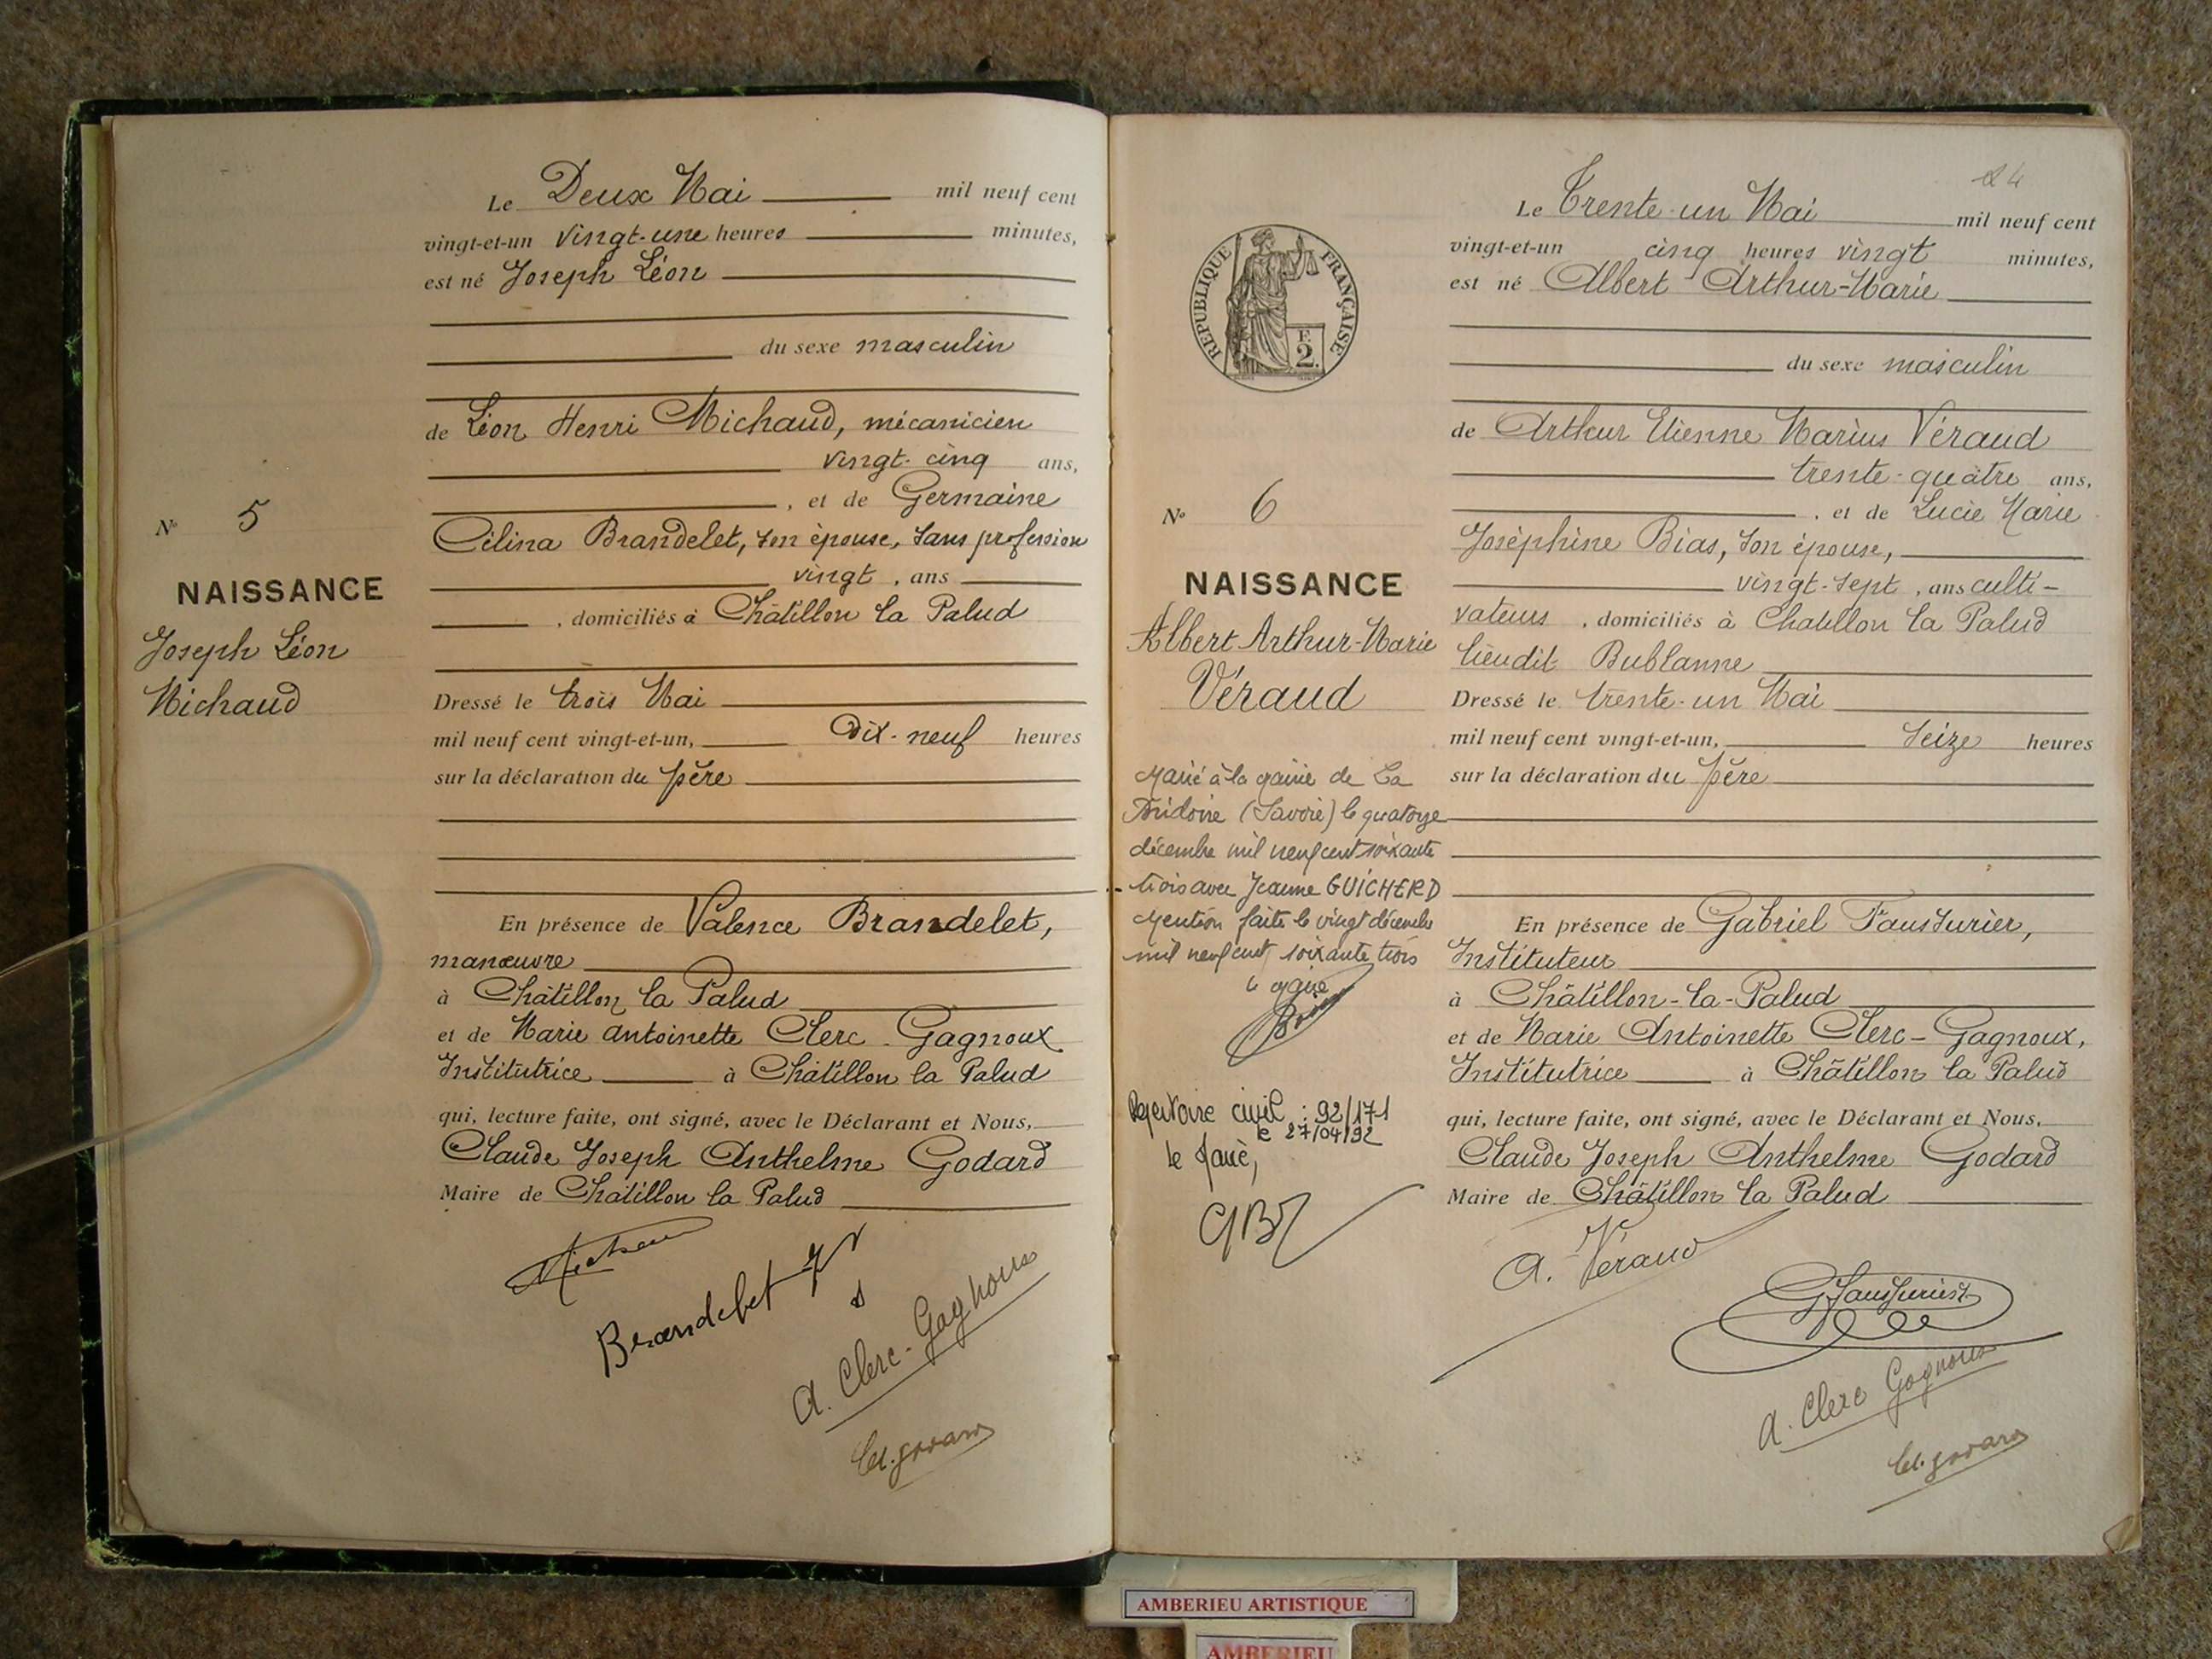 Le Deux Mai mil neuf cent
vingt-et-un vingt-une heures minutes,
est né Joseph Léon
du sexe masculin
de Léon Henri Michaud, mécanicien
vingt-cinq ans,
, et de Germaine
Célina Brandelet, son épouse, sans profession
vingt , ans
, domiciliés à Châtillon la Palud
Dressé le trois Mai
mil neuf cent vingt-et-un, Dix-neuf heures
sur la déclaration du père
En présence de Valence Brandelet,
manœuvre
à Châtillon la Palud
et de Marie Antoinette Clerc-Gagnoux
Institutrice à Châtillon la Palud
qui, lecture faite, ont signé, avec le Déclarant et Nous,
Claude Joseph Anthelme Godard
Maire de Châtillon la Palud
Brandelet
A. Clerc-Gagnoux
Cl. Godard
N° 5
NAISSANCE
Joseph Léon
Michaud
24
Le Trente-un Mai mil neuf cent
vingt-et-un cinq heures vingt minutes,
est né Albert Arthur-Marie
du sexe masculin
de Arthur Etienne Marius Véraud
trente-quatre ans,
, et de Lucie Marie
Joséphine Bias, son épouse,
vingt-sept , ans culti-
vateurs , domiciliés à Chatillon la Palud
lieudit Bublanne
Dressé le trente-un Mai
mil neuf cent vingt-et-un, seize heures
sur la déclaration du père
En présence de Gabriel Fausturier,
Instituteur
à Châtillon-la-Palud
et de Marie Antoinette Clerc-Gagnoux,
Institutrice à Châtillon la Palud
qui, lecture faite, ont signé, avec le Déclarant et Nous,
Claude Joseph Anthelme Godard
Maire de Châtillon la Palud
A. Véraud
G. Fausturier
A. Clerc Gagnoux
Cl. Godard
REPUBLIQUE FRANÇAISE
F.
2.
N° 6
NAISSANCE
Albert Arthur-Marie
Véraud
Marié à la mairie de La
Bridoire (Savoie) le quatorze
décembre mil neuf cent soixante
trois avec Jeanne GUICHERD
Mention faite le vingt décembre
mil neuf cent soixante trois
le maire
Repertoire civil : 92/171
le 27/04/92
le Maire,
AMBERIEU ARTISTIQUE
AMBERIEU